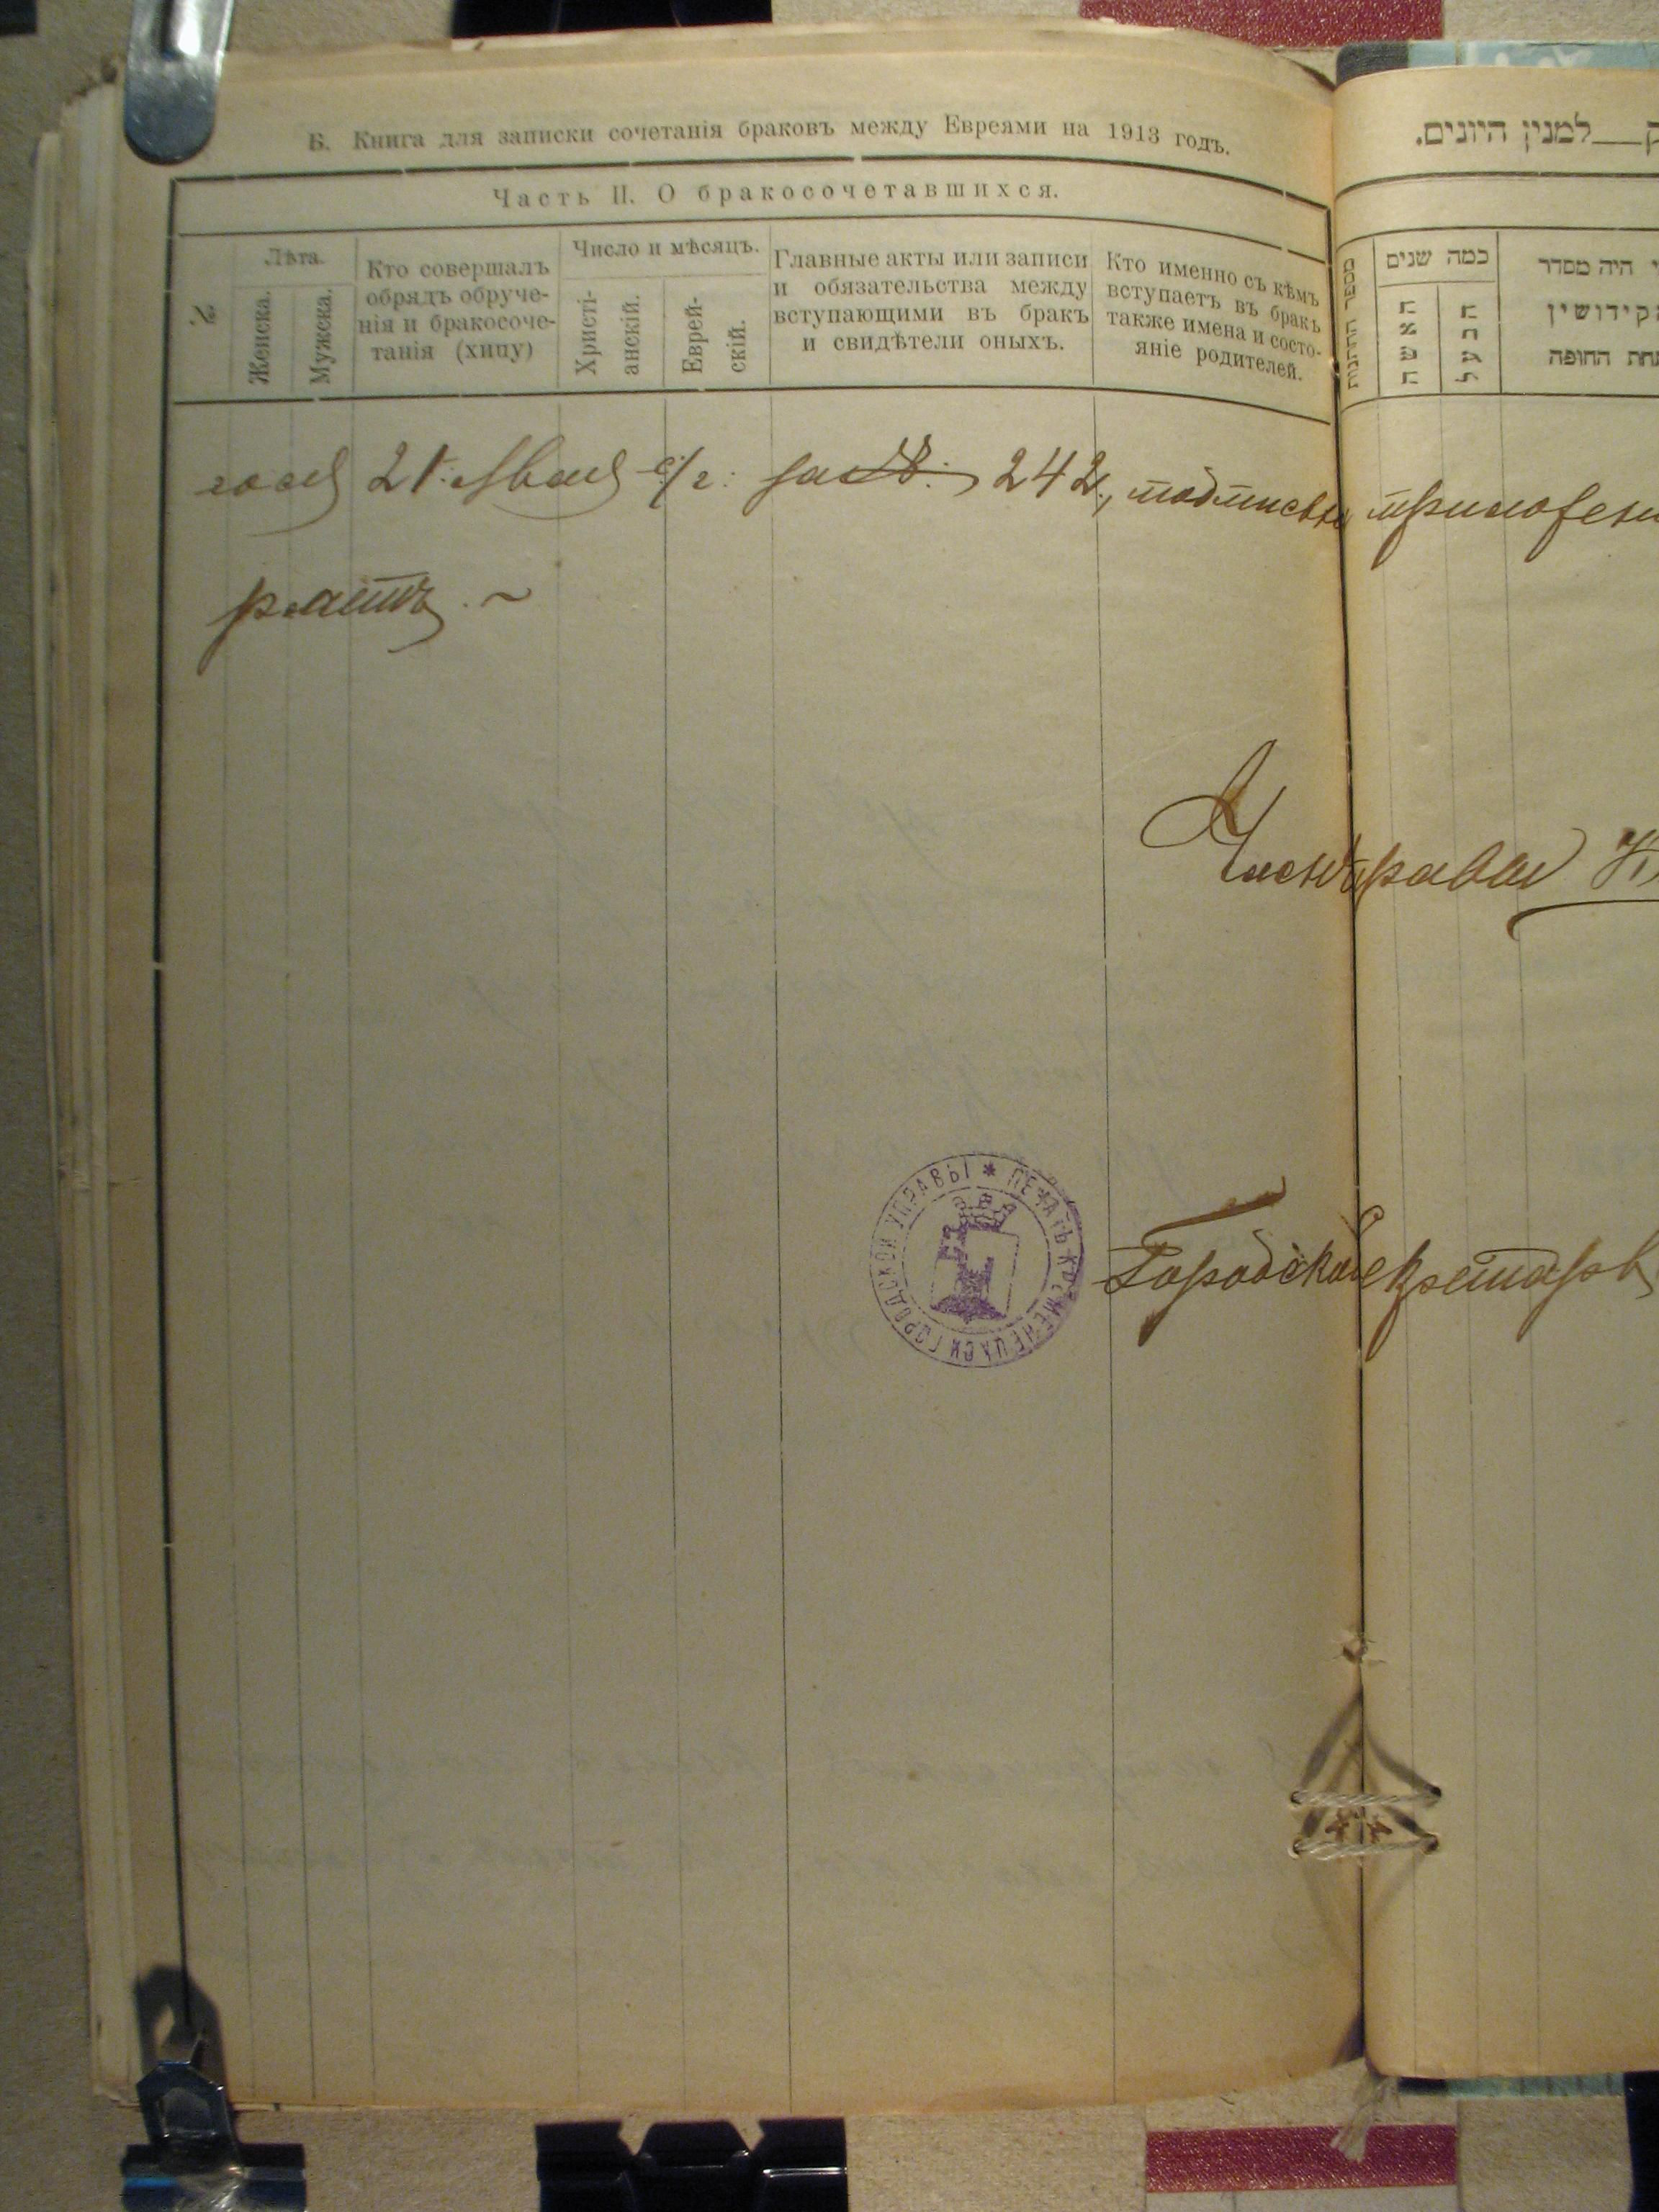 Б. Книга для записки сочетанія браковъ между Евреями на 1913 годъ.
Часть II. О бракосочетавшихся.
№
Лѣта.
Женска.
Мужска.
Кто совершалъ
обрядъ обруче-
нія и бракосоче-
танія (хипу)
Число и мѣсяцъ.
Христі-
анскій.
Еврей-
скій.
Главные акты или записи
и обязательства между
вступающими въ бракъ
и свидѣтели оныхъ.
Кто именно съ кѣмъ
вступаетъ въ бракъ
также имена и состо-
яніе родителей.
21 с/г. за № 242,
Членъ Управы
Городской Секретарь
ПЕЧАТЬ КРЕМЕНЕЦКОЙ ГОРОДСКОЙ УПРАВЫ
למנין היונים.
כמה שנים
האשה
הבעל
היה מסדר
קידושין
תחת החופה